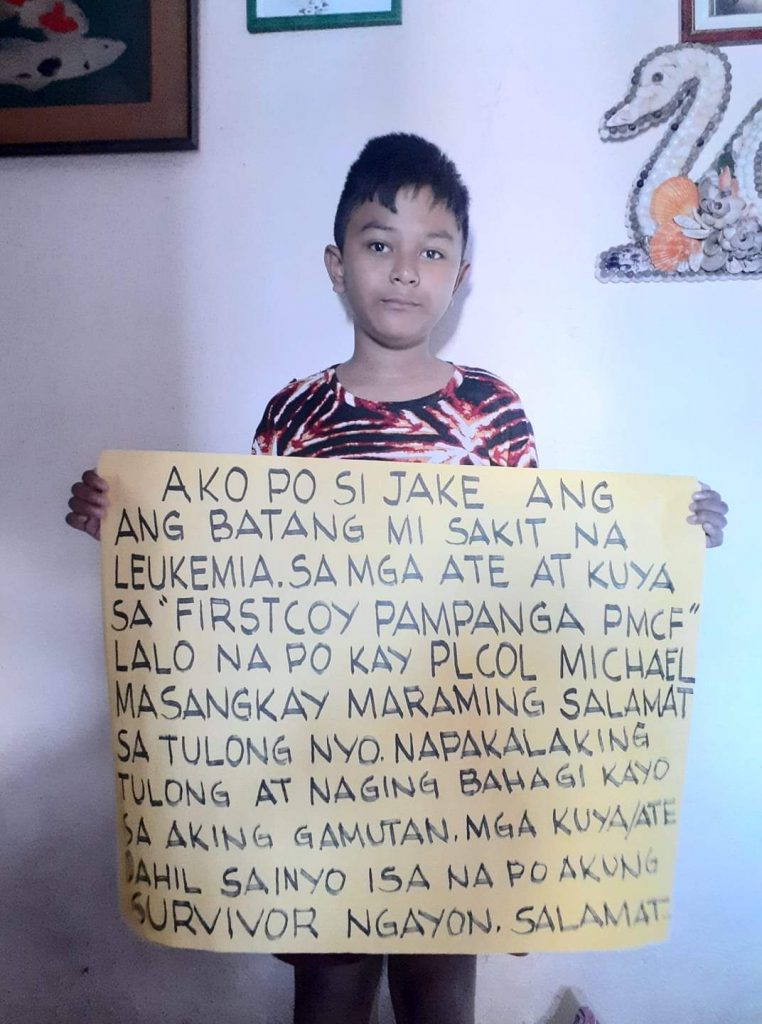 AKO PO SI JAKE ANG
ANG BATANG MI SAKIT NA
LEUKEMIA. SA MGA ATE AT KUYA
SA "FIRSTCOY PAMPANGA PMCF"
LALO NA PO KAY PLCOL MICHAEL
MASANGKAY MARAMING SALAMAT
SA TULONG NYO. NAPAKALAKING
TULONG AT NAGING BAHAGI KAYO
SA AKING GAMUTAN. MGA KUYA/ATE
DAHIL SAINYO ISA NA PO AKUNG
SURVIVOR NGAYON. SALAMAT..